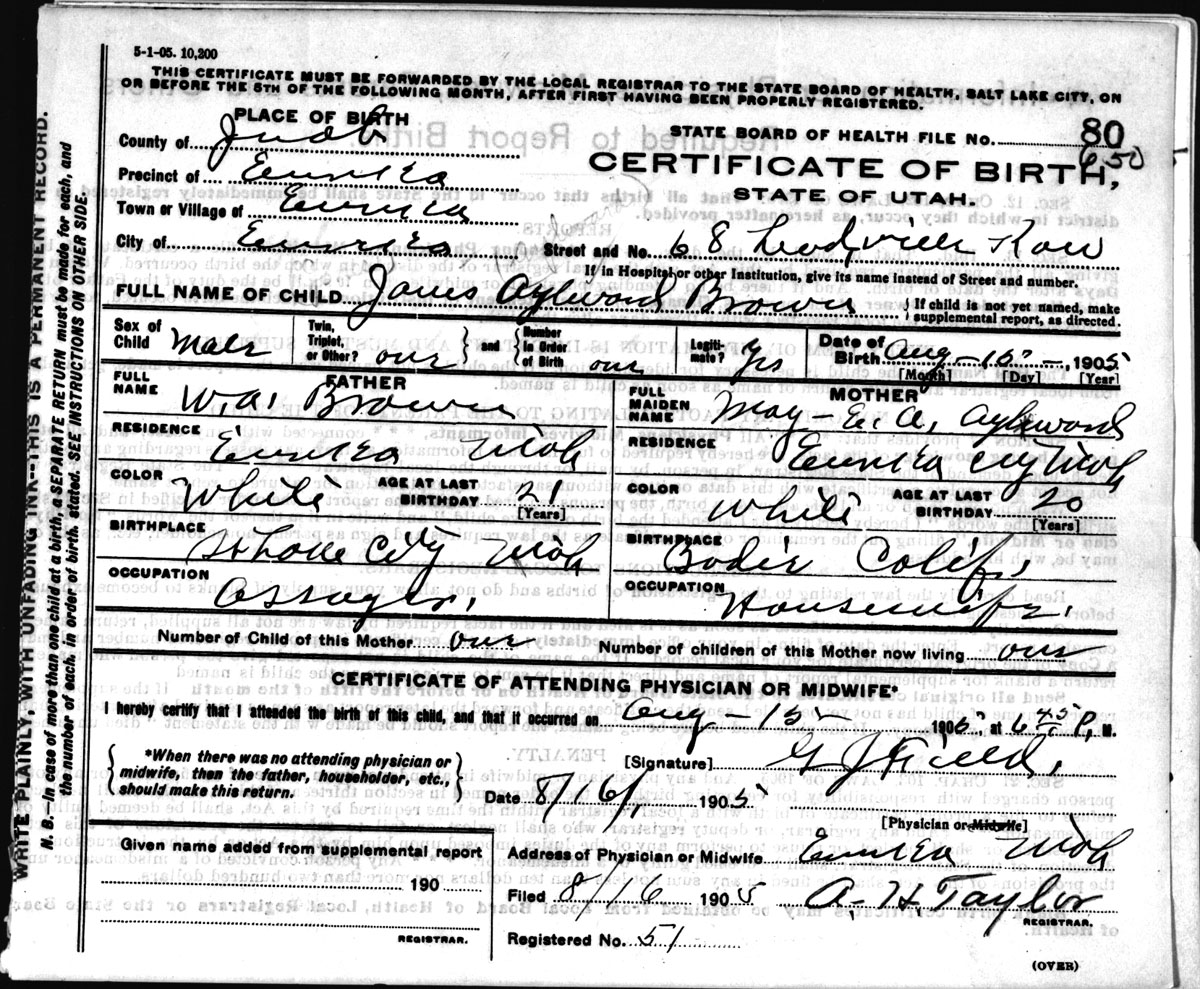 5-1-05. 10,200
THIS CERTIFICATE MUST BE FORWARDED BY THE LOCAL REGISTRAR TO THE STATE BOARD OF HEALTH, SALT LAKE CITY, ON
OR BEFORE THE 5TH OF THE FOLLOWING MONTH, AFTER FIRST HAVING BEEN PROPERLY REGISTERED.
WRITE PLAINLY, WITH UNFADING INK--THIS IS A PERMANENT RECORD.
N. B.—In case of more than one child at a birth, a SEPARATE RETURN must be made for each, and
the number of each, in order of birth, stated. SEE INSTRUCTIONS ON OTHER SIDE.
PLACE OF BIRTH
County of Juab
Precinct of Eureka
Town or Village of Eureka
City of Eureka
STATE BOARD OF HEALTH FILE NO. 80
650
CERTIFICATE OF BIRTH,
STATE OF UTAH.
Street and No. 68 Leadville Row
If in Hospital or other Institution, give its name instead of Street and number.
FULL NAME OF CHILD James Aylward Brown { If child is not yet named, make supplemental report, as directed.
Sex of Child Male Twin, Triplet, or Other? one } and { Number in Order of Birth one Legitimate? Yes Date of Birth Aug - 15 -, 1905
[Month] [Day] [Year]
FATHER
FULL NAME W. A. Brown
RESIDENCE Eureka Utah
COLOR White AGE AT LAST BIRTHDAY 21
[Years]
BIRTHPLACE City Utah
OCCUPATION Assayer.
MOTHER
FULL MAIDEN NAME May - E. A. Aylward
RESIDENCE Eureka City Utah
COLOR White AGE AT LAST BIRTHDAY 20
[Years]
BIRTHPLACE Bodie Calif.
OCCUPATION Housewife.
Number of Child of this Mother one Number of children of this Mother now living one
CERTIFICATE OF ATTENDING PHYSICIAN OR MIDWIFE*
I hereby certify that I attended the birth of this child, and that it occurred on Aug - 15 - 1905, at 6 45 P. M.
{ *When there was no attending physician or midwife, then the father, householder, etc., should make this return. }
[Signature] G J Field.
Date 8/16/, 1905
[Physician or Midwife]
Given name added from supplemental report
190
REGISTRAR.
Address of Physician or Midwife Eureka Utah
Filed 8/16 1905 A. H Taylor
REGISTRAR.
Registered No. 51
(OVER)